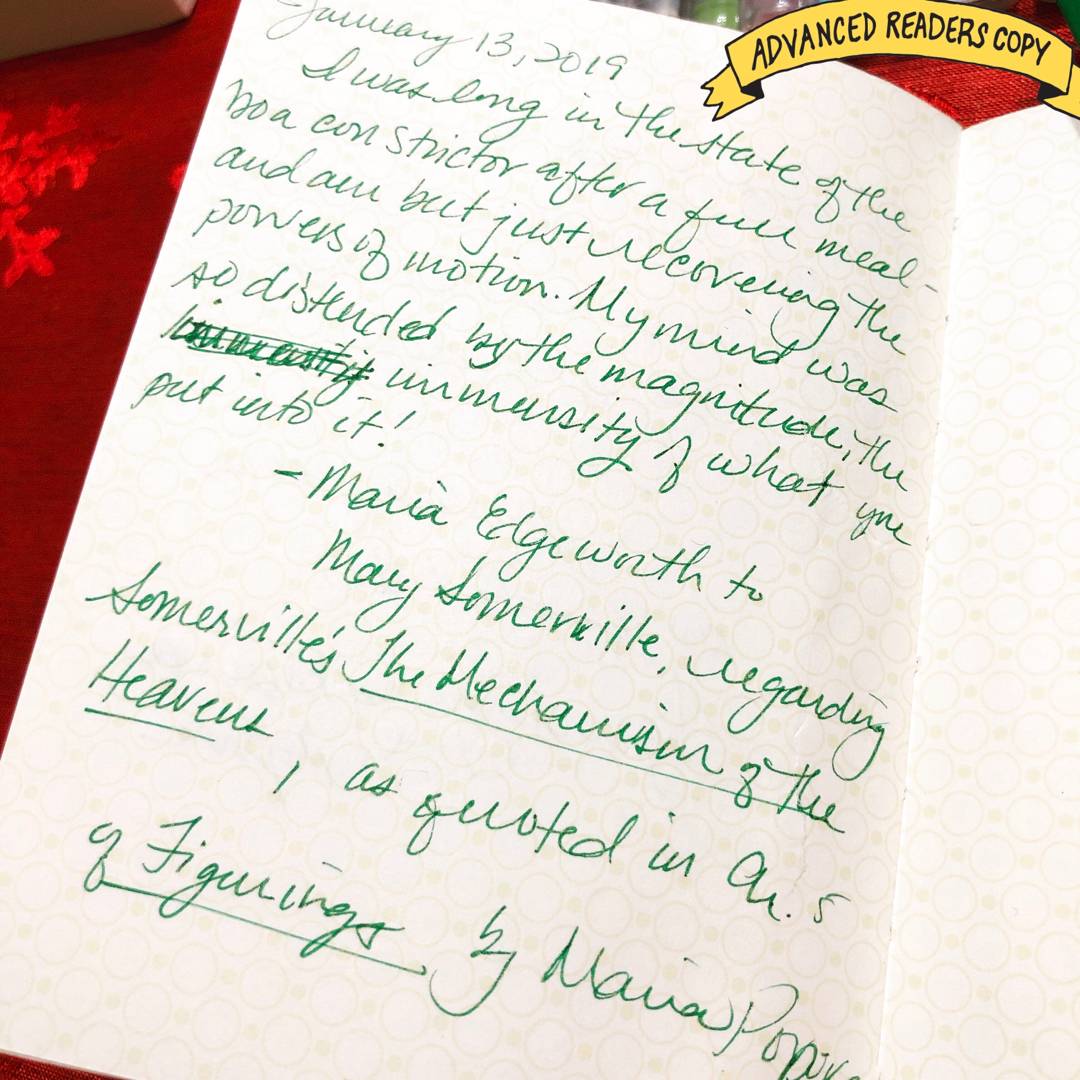 ADVANCED READERS COPY
January 13, 2019
I was long in the state of the
boa constrictor after a full meal -
and am but just recovering the
powers of motion. My mind was
so distended by the magnitude, the
immensity immensity of what you
put into it!
- Maria Edgeworth to
Mary Somerville, regarding
Somerville's The Mechanism of the
Heavens, as quoted in Ch. 5
of Figurings, by Maria Popova